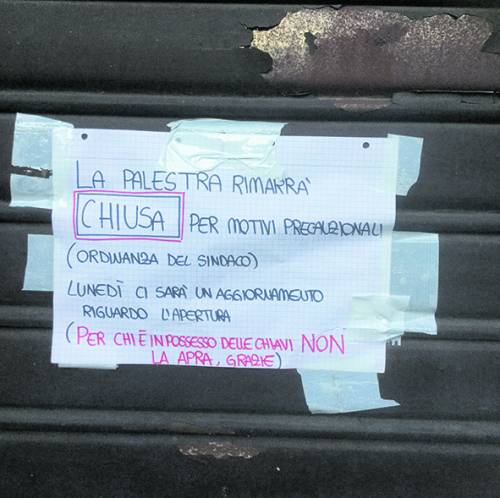 LA PALESTRA RIMARRA'
CHIUSA PER MOTIVI PRECAUZIONALI
(ORDINANZA DEL SINDACO)
LUNEDÌ CI SARÀ UN AGGIORNAMENTO
RIGUARDO L'APERTURA
(PER CHI È IN POSSESSO DELLE CHIAVI NON
LA APRA, GRAZIE)